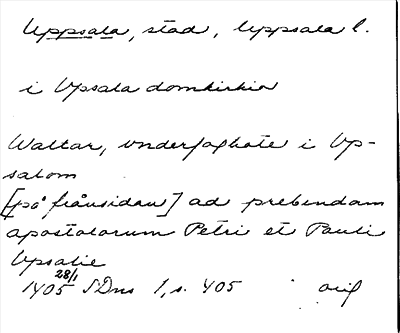 Uppsala, stad, Uppsala l.
i Upsala domkirkio
Waltar, underfoghote i Up-
salom
[på frånsidan] ad prebendam
apostolorum Petri et Pauli
Upsalie
1405 28/1 SDns 1, s. 405 orig